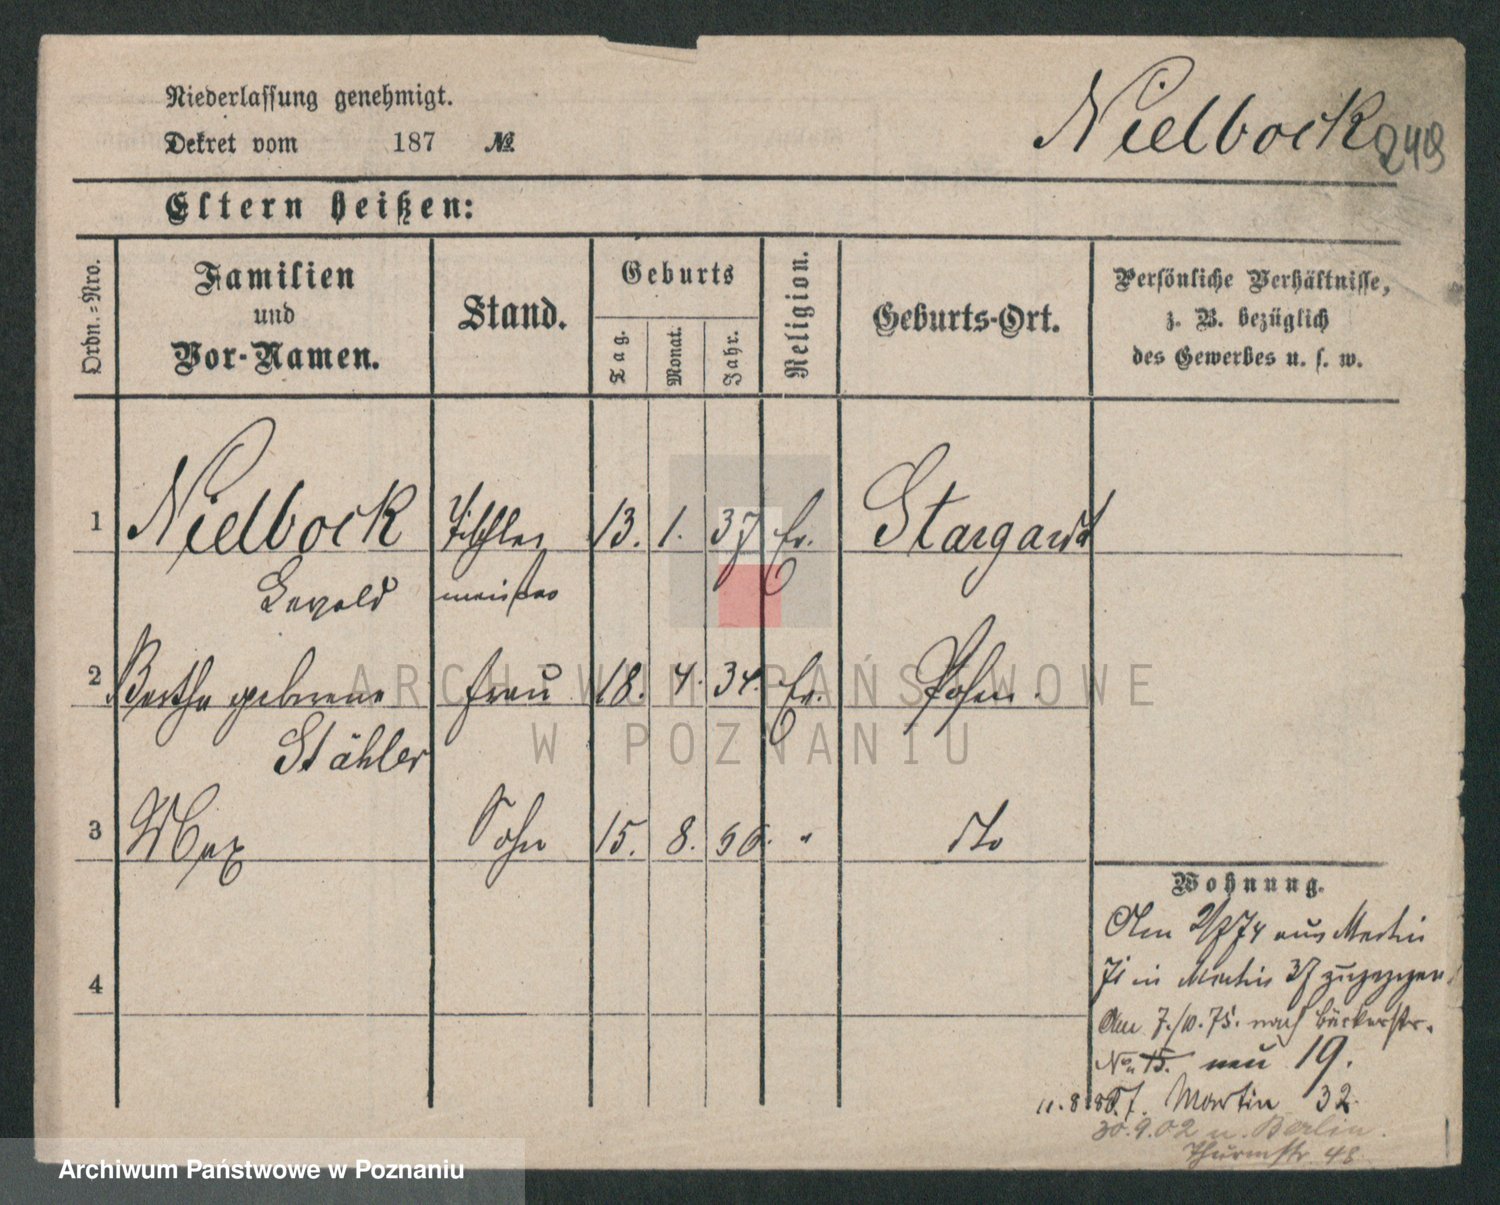 Niederlassung genehmigt.
Dekret vom 187 №
Nielbock
249
Eltern heißen:
Ordn.-Nro.
Familien
und
Vor-Namen.
Stand.
Geburts
Tag.
Monat.
Jahr.
Religion.
Geburts-Ort.
Persönliche Verhältnisse,
z. B. bezüglich
des Gewerbes u. s. w.
1 Nielbock Tischler 13. 1. 37 Ev. Stargardt
meister
2 Bertha geborene Frau 18. 4. 34. Ev. Posen.
Stähler
3 Max Sohn 15. 8. 66. " dto
4
Wohnung.
Am 2/7 74 aus Martin
in Martin 37 zugezogen
Am 7./10. 75. nach Bäckerstr.
No. 15. neu 19.
11.8.85 Martin 32
30.9.02 n. Berlin.
Thurmstr 48
ARCHIWUM PAŃSTWOWE
W POZNANIU
Archiwum Państwowe w Poznaniu